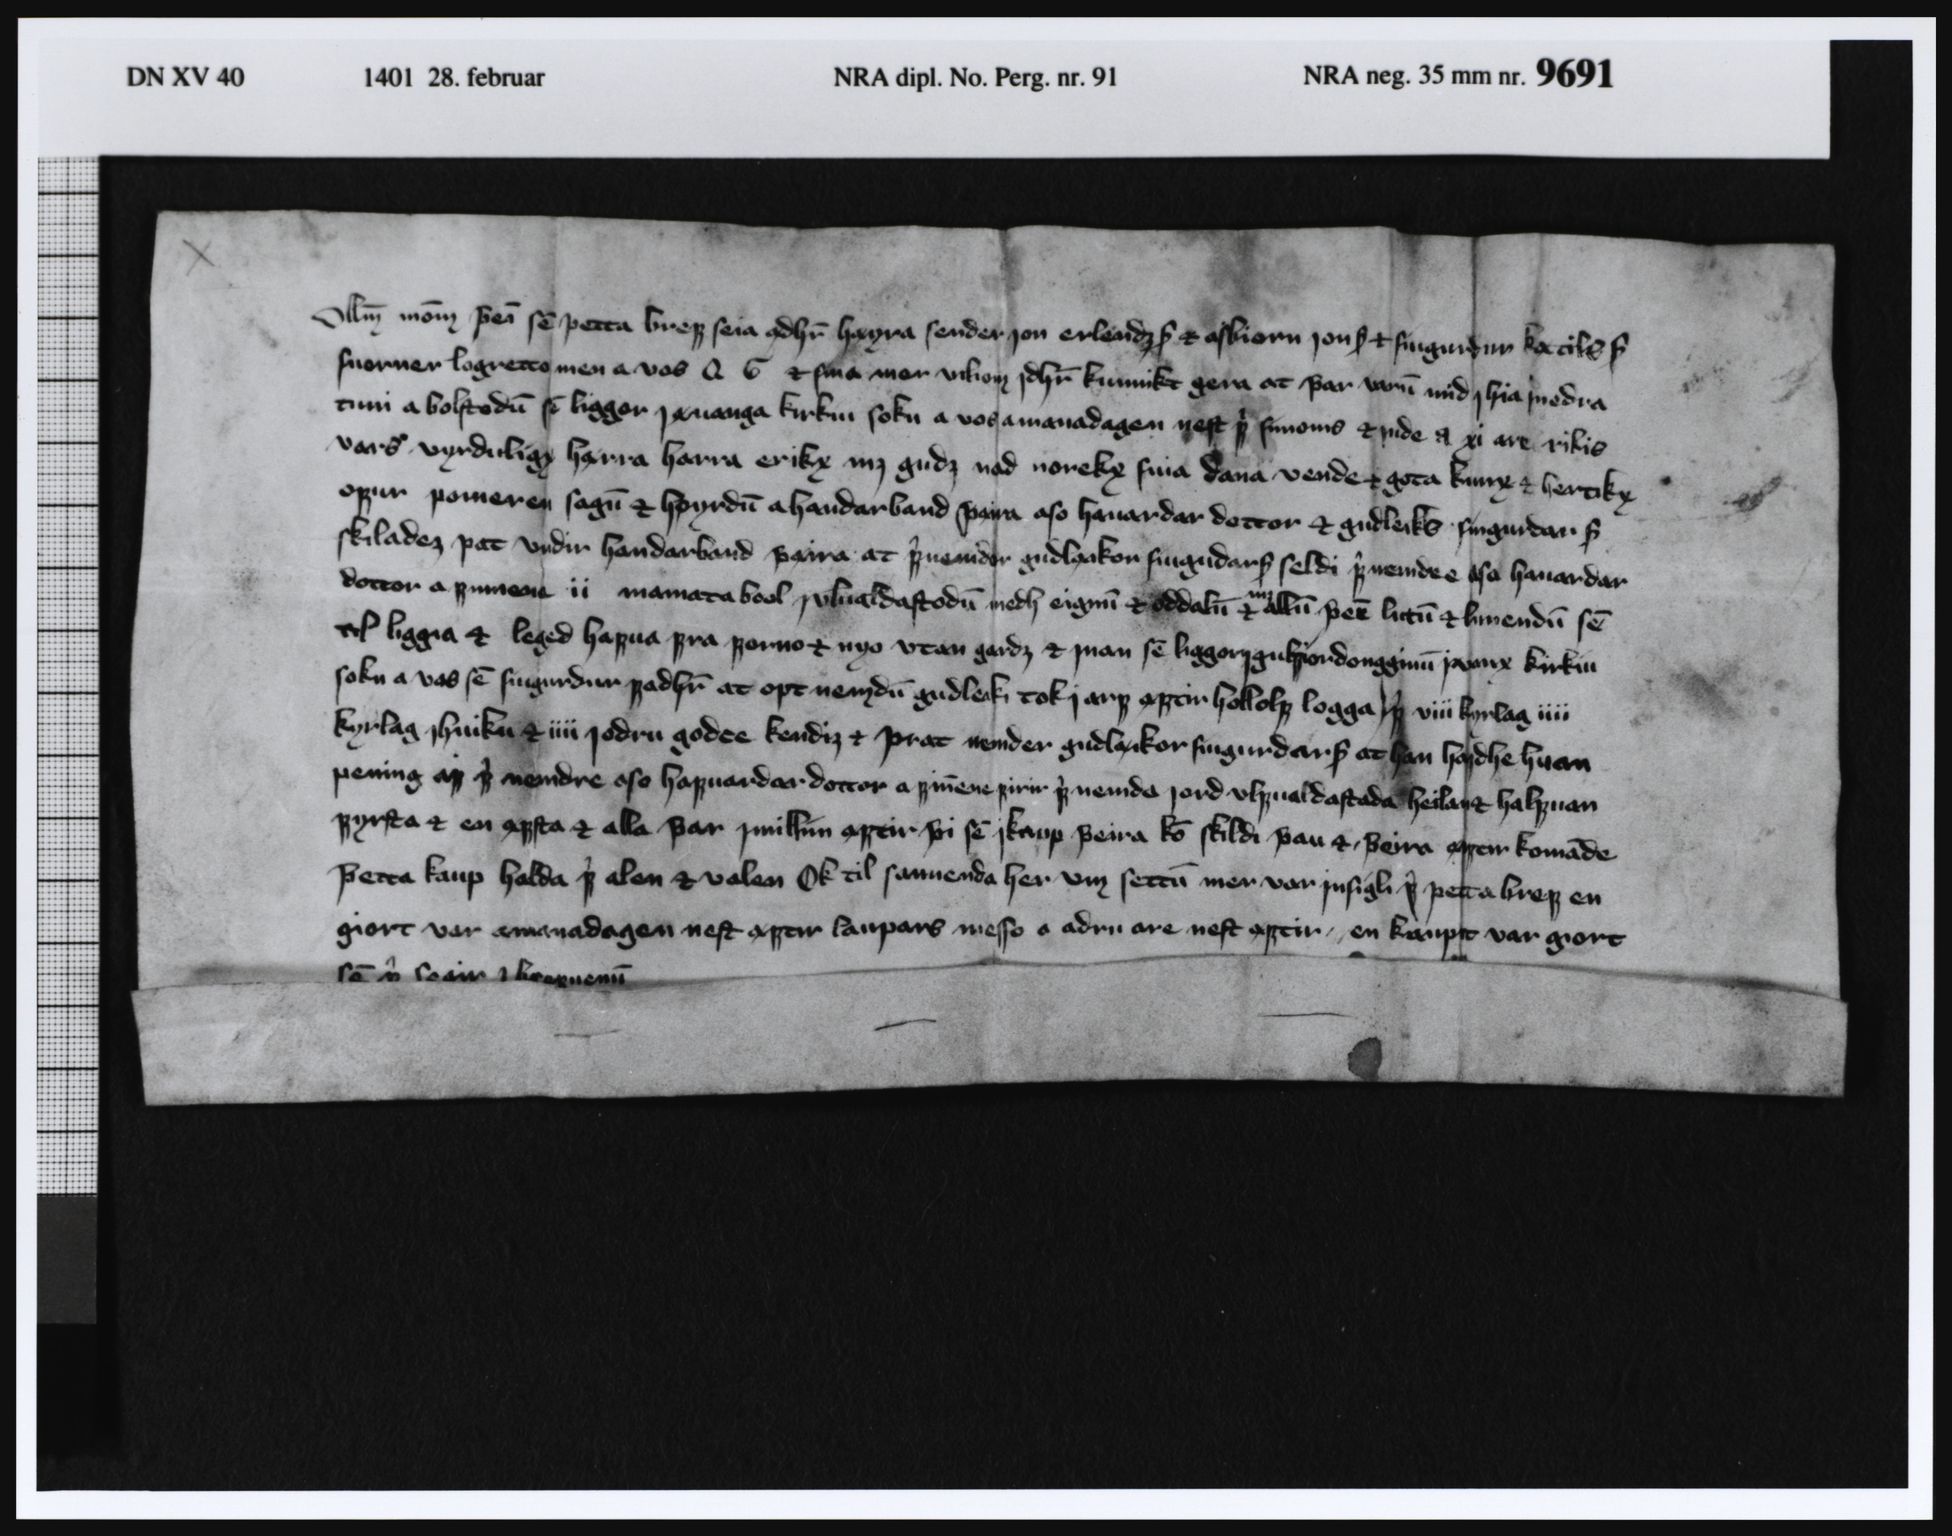 DN XV 40 1401 28. februar NRA dipl. No. Perg. nr. 91 NRA neg. 35 mm nr. 9691
Ollm̄ mōm þeī sē þetta breff seia ædhr̄ hœyra sender jon erlendzs̄ & asbiorn jons̄ & siugurdur kætils s̄
suorner logretto men a vos Q G & sina mer viliom jdhr̄ kunnikt gera at þar varū mid j hia medra
tuni a bolstodū sē ligger j vanga kirkiu sokn a vos a manadagen nest f̄ simonis & jude a xi are rikis
vars vyrduligx hærra hærra erikx mz gudz nad norekx suia dana vende & gota kunnx & hertikx
offuer pomeren sagū & hœyrdū a handarband þæira aso hauardar dottor & gudleiks siugurdar s̄
skiladez þat vndir handarband þæira at f̄nemder gudlæikor siugudars̄ seldi f̄nemdre aso hauardar
dottor a finnene ii mamata bool j vlualdastodū medh eignū & oddalū & mz allū þeī lutū & lunendū sē
til liggia & leged hafua fra forno & nyo vtan gardz & jnan sē ligger j gulfiordonggiuū j vanx kirkiu
sokn a vos sē siugurdur fadhr̄ at opt nemdū gudleiki tok j arff æftir hollolff logga s̄ f̄ viii kyrlag iiii
kyrlag j huiku & iiii jodru godce kendiz & þrat nemder gudlæikor siugurdars̄ at han hafdhe huan
pening aff f̄ nemdre aso hafuardar dottor a finnene firir f̄nemda jord vlfualdastada heilan & halfuan
fyrsta & en æfsta & alla þar j millim æftir þi sē j kaup þeira kō skildi þau & þeira æftir komāde
þetta kaup halda f̄ alen & valen Ok til sannenda her vm settū mer var jnsigli f̄ þetta breff en
giort var a manadagen nest æftir laupars messo a adru are nest æftir en kaupit var giort
sē f̄ seghir j breffuenū